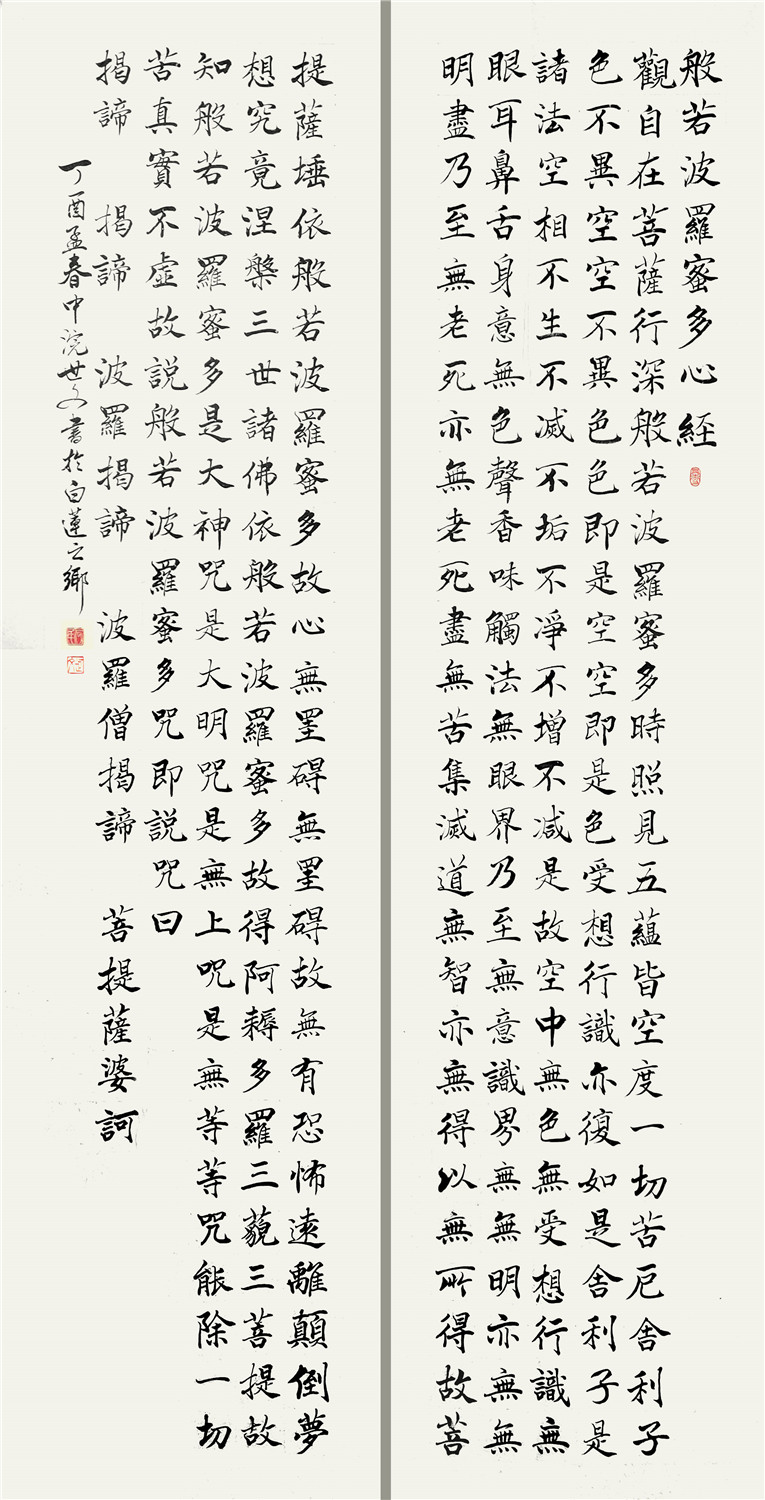 般若波羅蜜多心経
觀自在菩薩行深般若波羅蜜多時照見五蘊皆空度一切苦厄舍利子
色不異空空不異色色即是空空即是色受想行識亦復如是舍利子是
諸法空相不生不滅不垢不淨不增不減是故空中無色無受想行識無
眼耳鼻舌身意無色聲香味觸法無眼界乃至無意識界無無明亦無無
明盡乃至無老死亦無老死盡無苦集滅道無智亦無得以無所得故菩
提薩埵依般若波羅蜜多故心無罣碍無罣碍故無有恐怖遠離顛倒夢
想究竟涅槃三世諸佛依般若波羅蜜多故得阿耨多羅三藐三菩提故
知般若波羅蜜多是大神咒是大明咒是無上咒是無等等咒能除一切
苦真實不虛故説般若波羅蜜多咒即説咒曰
揭諦 揭諦 波羅揭諦 波羅僧揭諦 菩提薩婆訶
丁酉孟春中浣世文書於白蓮之鄉